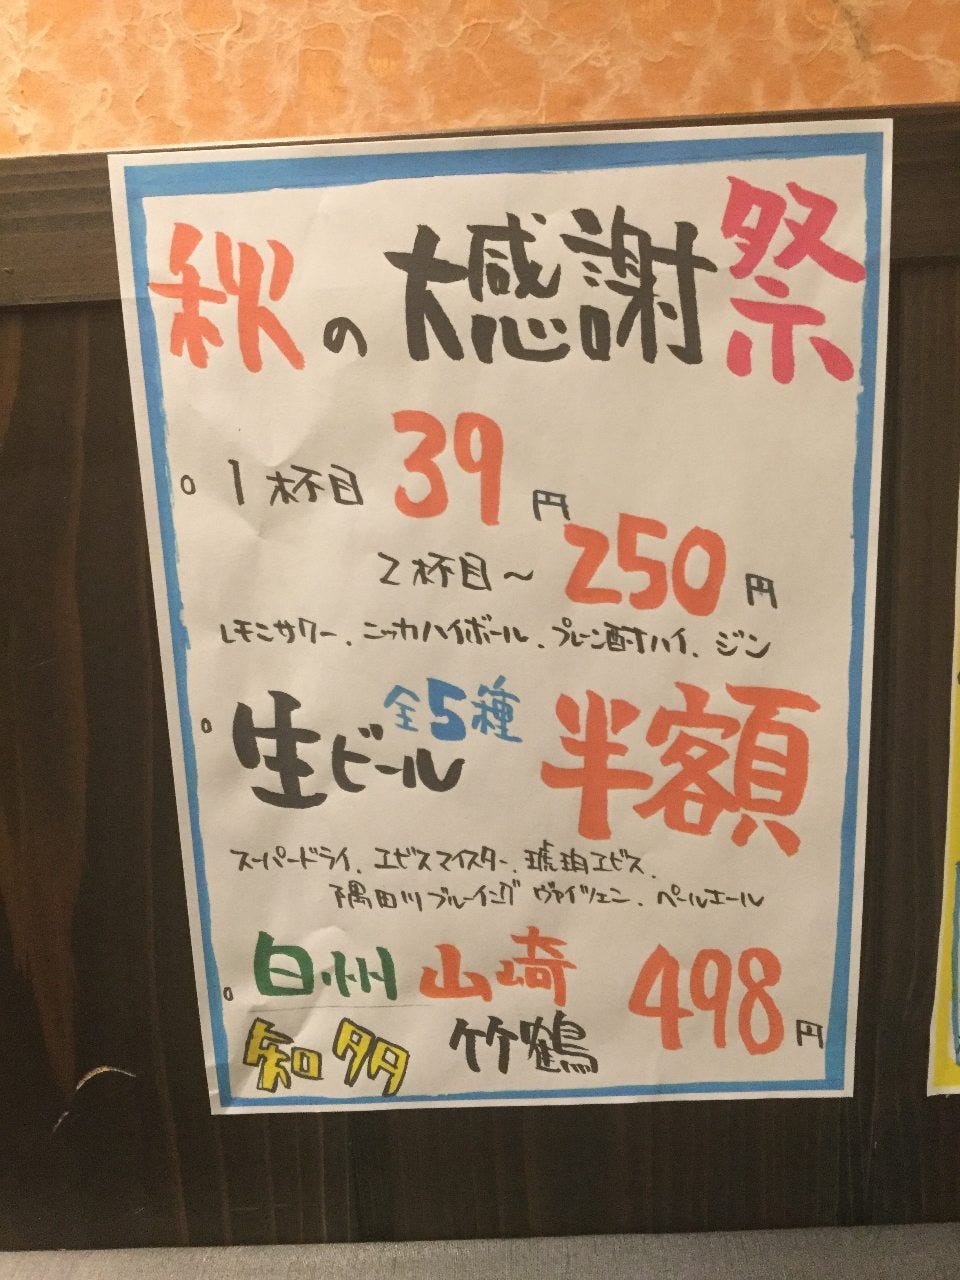 秋の大感謝祭
○ 1杯目 39円
2杯目～250円
レモンサワー、ニッカハイボール、プレーン酎ハイ、ジン
○ 生ビール 全5種 半額
スーパードライ、エビスマイスター、琥珀エビス、
隅田川ブルーイング ヴァイツェン、ペールエール
○ 白州 山崎 498円
知多 竹鶴